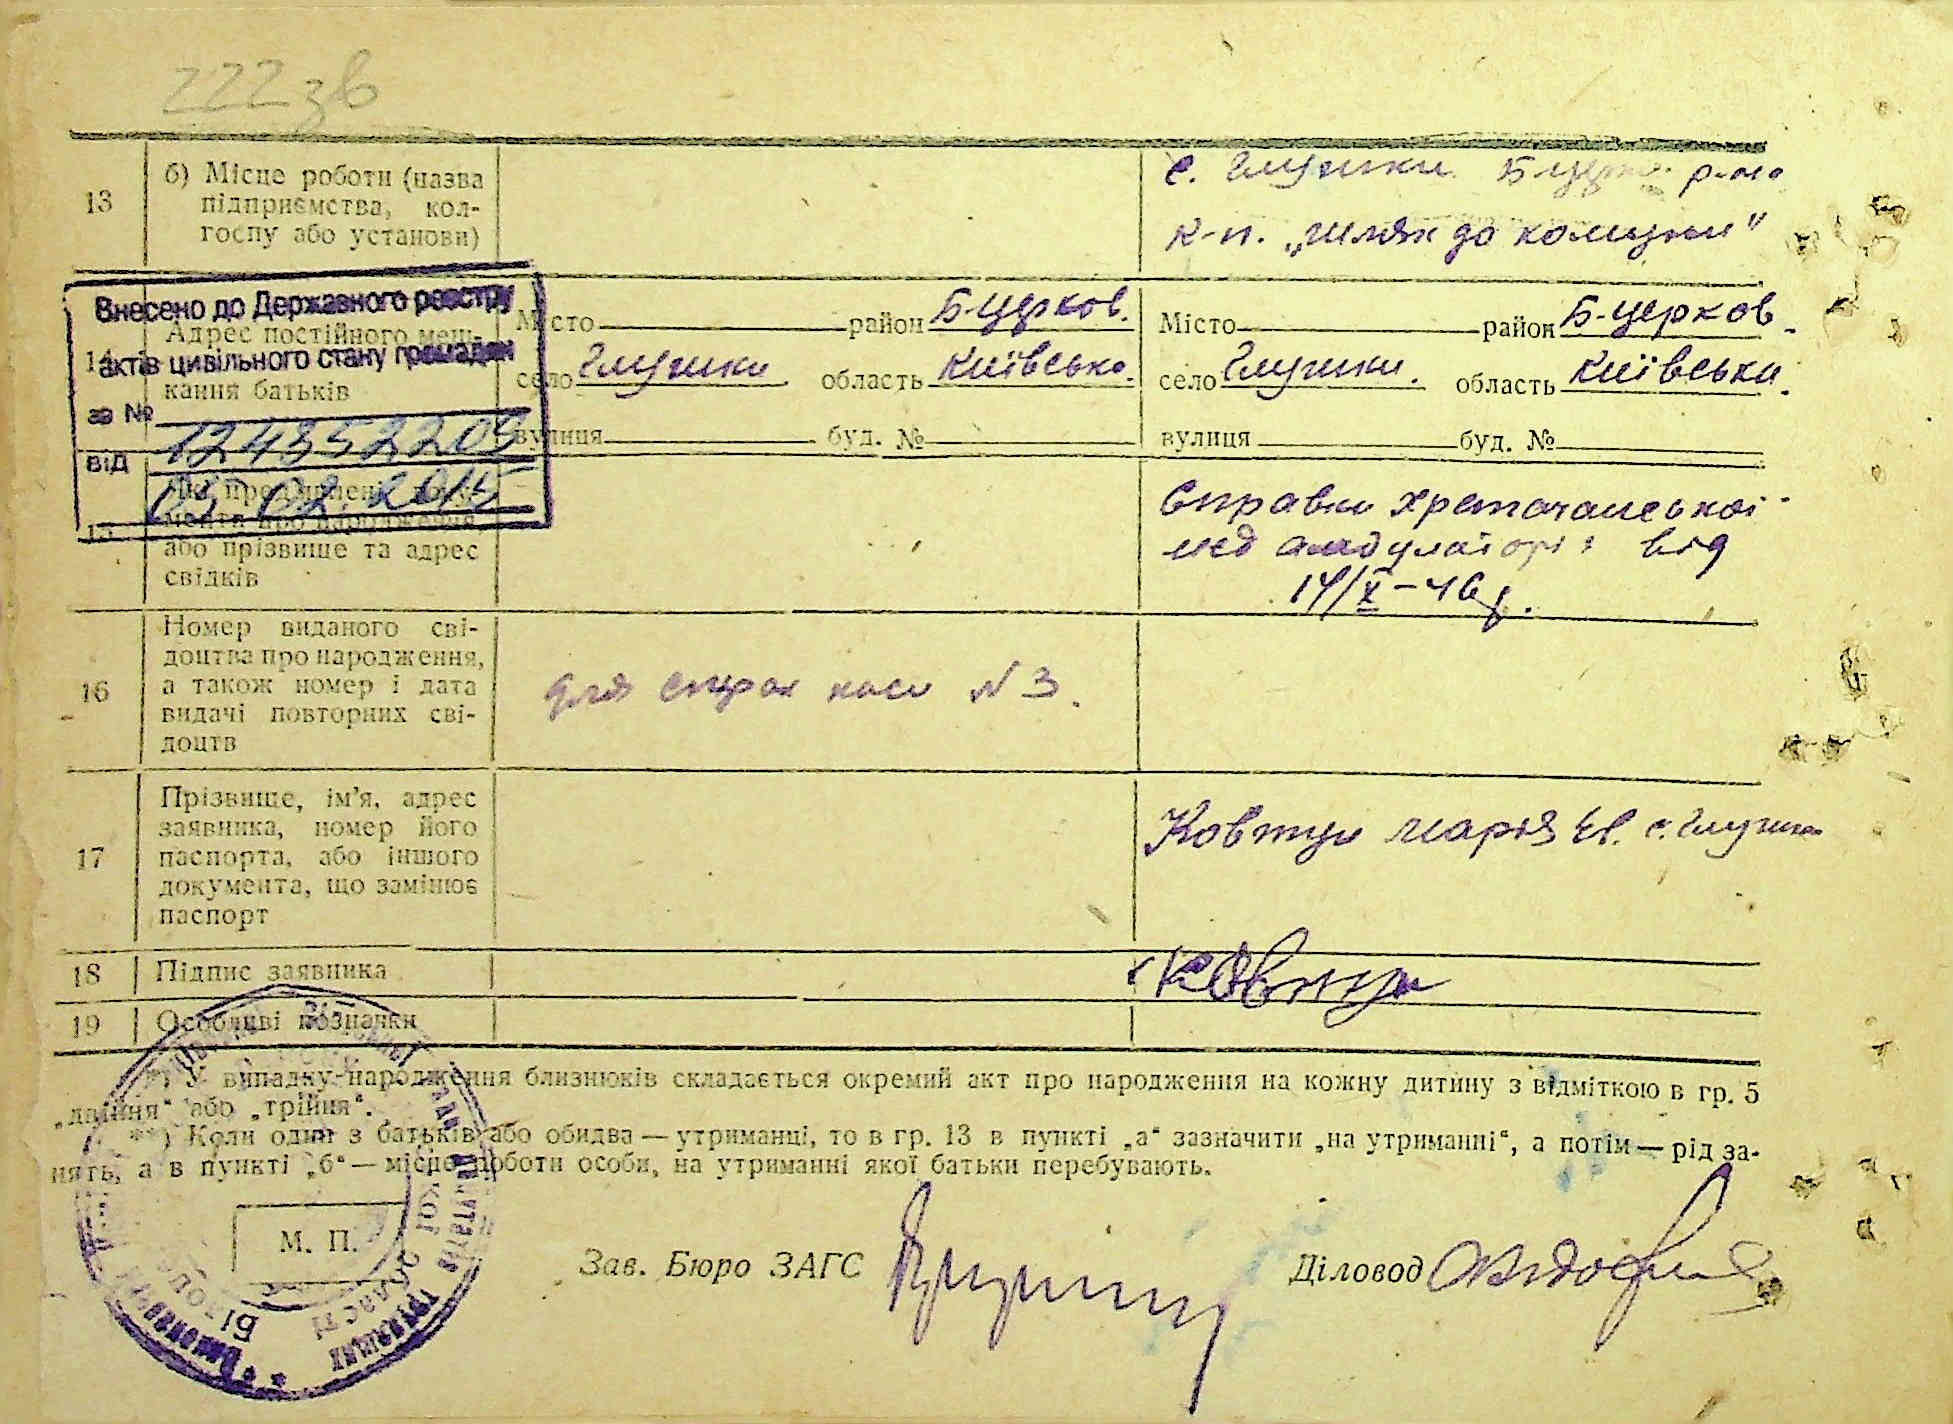 222 зв
13
б) Місце роботи (назва
підприємства, кол-
госпу або установи)
с. Глушки Б-церк. р-на
к-п. „Шлях до комуни"
Внесено до Державного реєстру
актів цивільного стану громадян
за №
124352209
від
02.2015
14
Адрес постійного меш-
кання батьків
Місто район Б-церков.
село Глушки область Київська.
вулиця буд. №
Місто район Б-церков.
село Глушки. область Київська.
вулиця буд. №
15
Які пред'явлені доку-
менти про народження,
або прізвище та адрес
свідків
Справка
мед амбулаторі від
14/X-46р.
16
Номер виданого сві-
доцтва про народження,
а також номер і дата
видачі повторних сві-
доцтв
для страх каси № 3.
17
Прізвище, ім'я, адрес
заявника, номер його
паспорта, або іншого
документа, що замінює
паспорт
Ковтун Марія с. Глушки
18 Підпис заявника
Ковтун
19 Особливі позначки
*) У випадку народження близнюків складається окремий акт про народження на кожну дитину з відміткою в гр. 5
„двійня“ або „трійня“.
**) Коли один з батьків або обидва — утриманці, то в гр. 13 в пункті „а“ зазначити „на утриманні“, а потім — рід за-
нять, а в пункті „б“ — місце роботи особи, на утриманні якої батьки перебувають.
М. П.
Зав. Бюро ЗАГС
Діловод